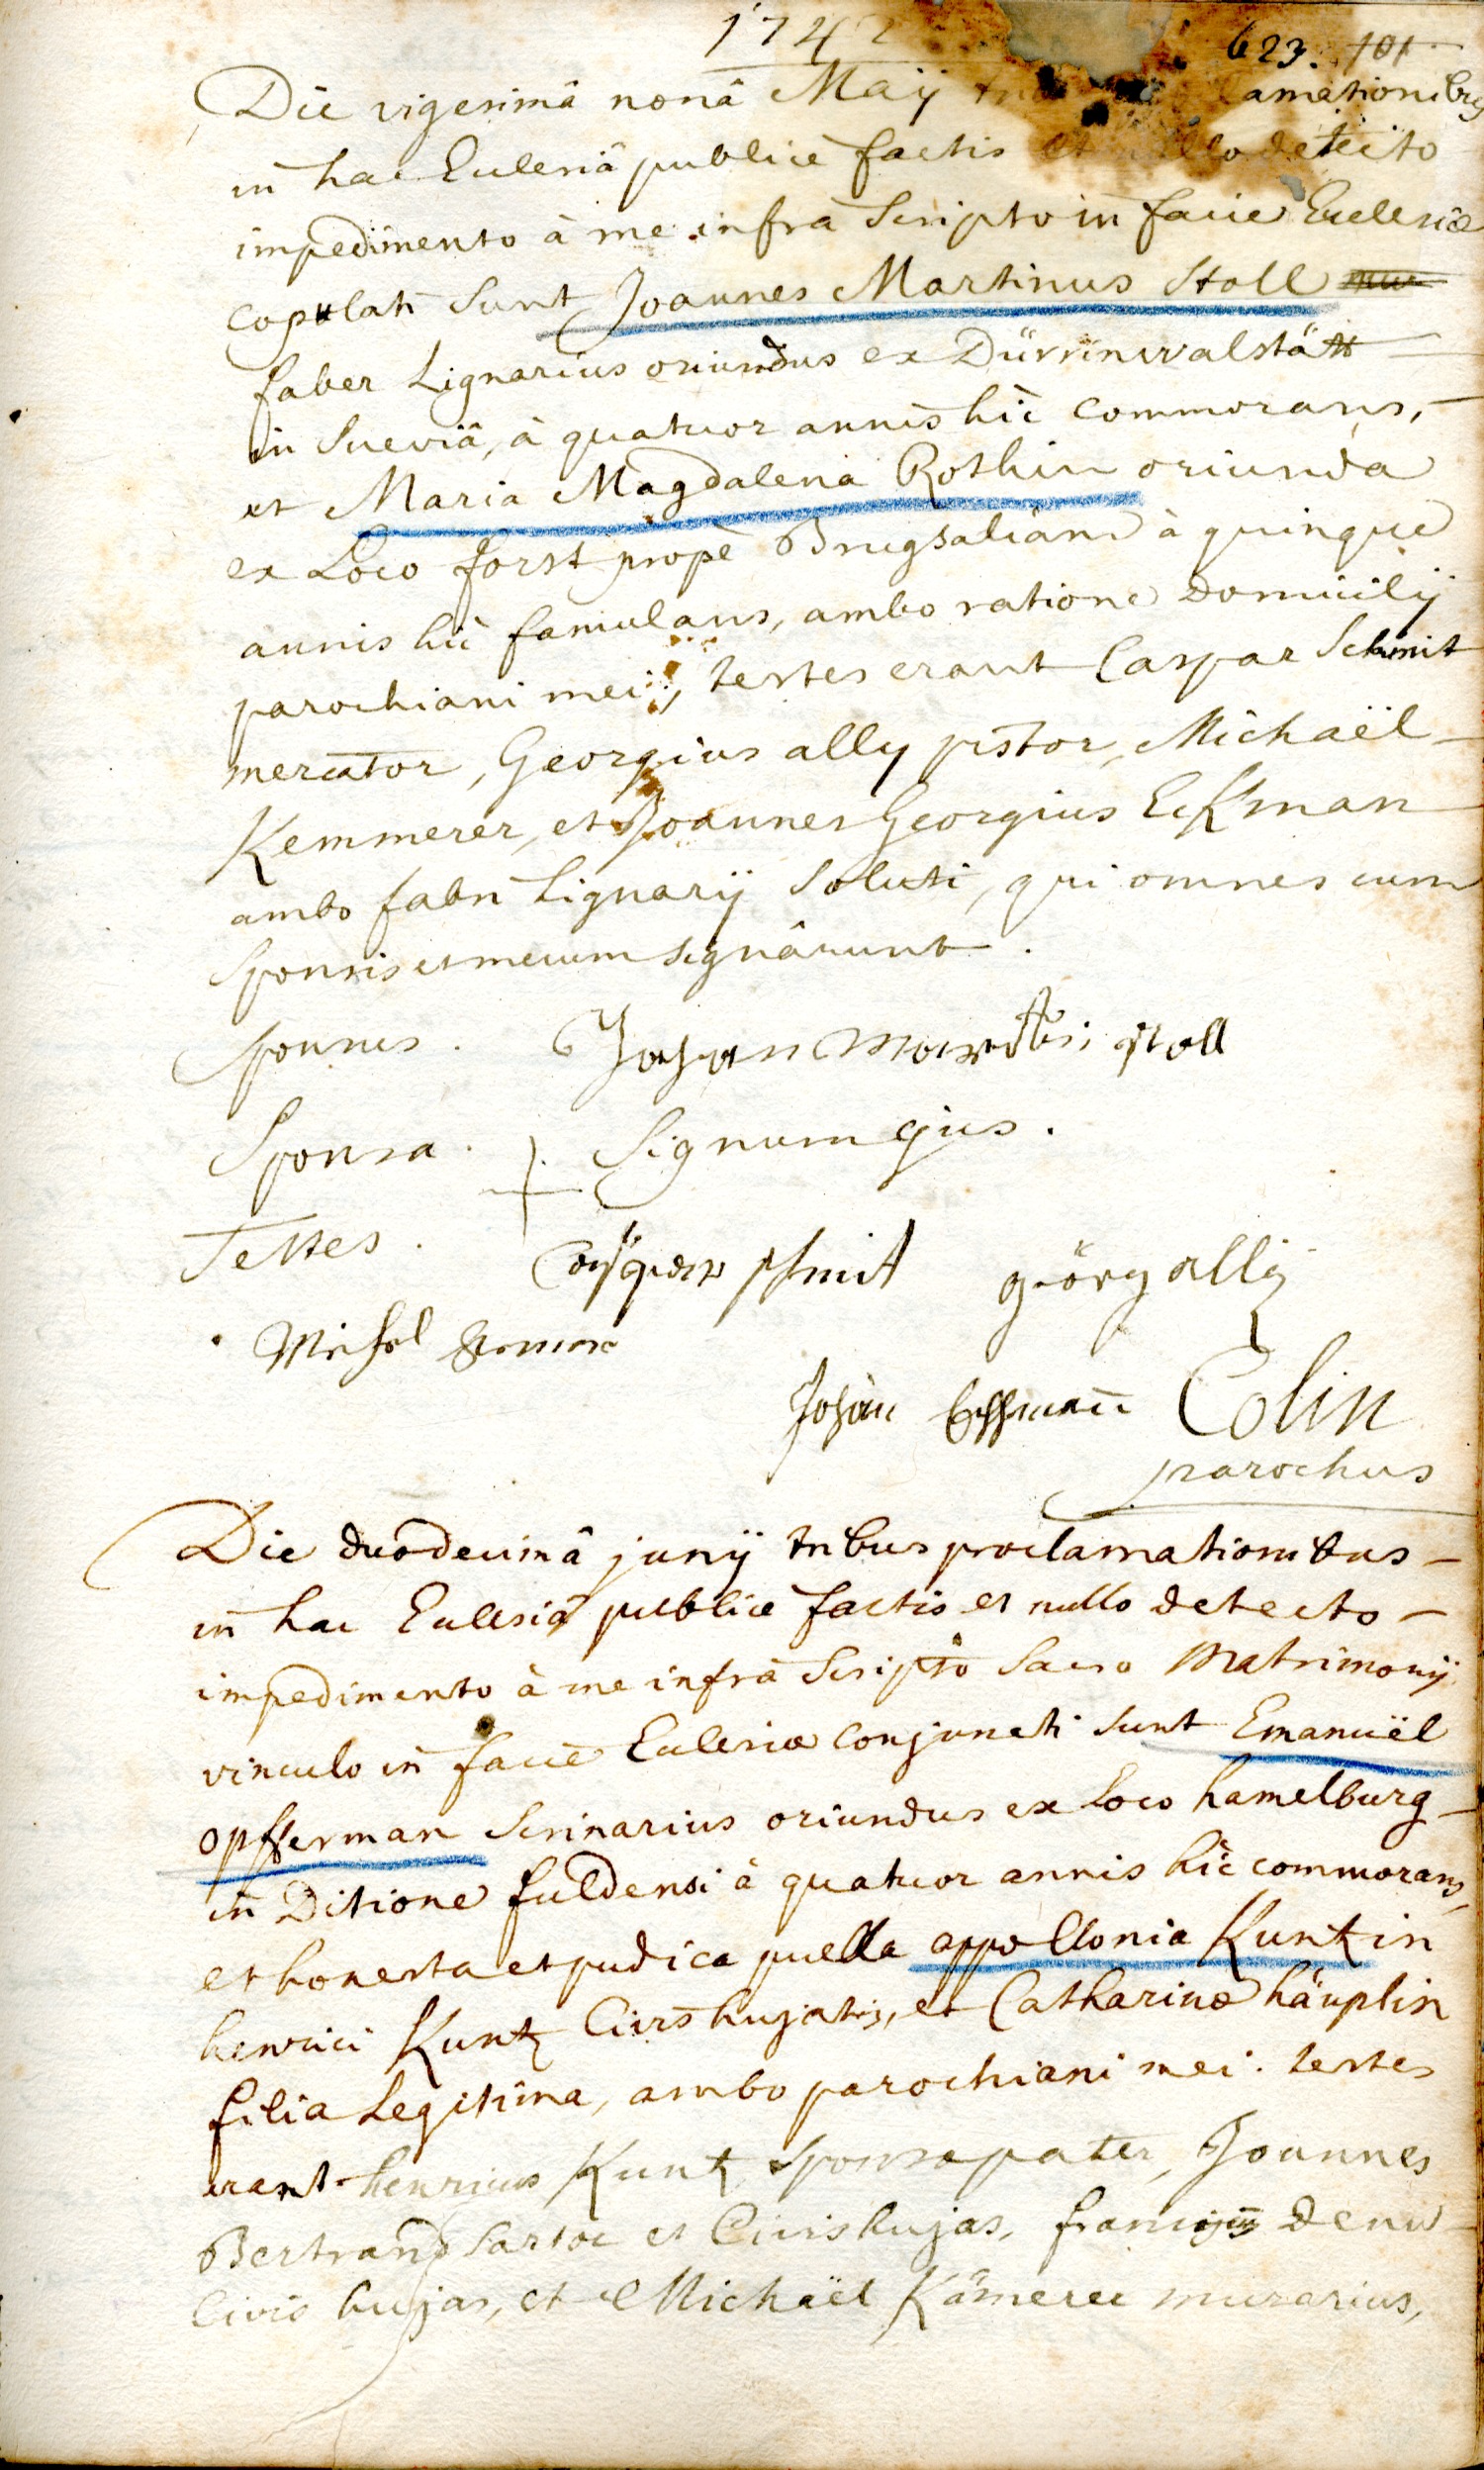 1742
623. 101
Die vigesimâ nonâ Maij amationibus
in hac Ecclesiâ publicè factis et nullo detecto
impedimento à me infrà Scripto in facie Ecclesiæ
copulati sunt Joannes Martinus Stoll
faber Lignarius oriundus ex Dürrinwalstätt
in Sueviâ, à quatuor annis hìc commorans,
et Maria Magdalena Rothin oriunda
ex Loco forst propè Brugsaliam à quinque
annis hìc famulans, ambo ratione Domicilij
parochiani mei, testes erant Caspar Schmit
mercator, Georgius ally pistor, Michaël
Kemmerer, et Joannes Georgius Eckman
ambo fabri Lignarij Soluti, qui omnes cum
Sponsis et mecum signârunt.
Sponsus. Johan Martin Stoll
Sponsa. + Signum ejus.
Testes. Casper schmit görg allij
Michel
Johan Eckmann Colin
parochus
Die duodecimâ junij tribus proclamationibus
in hac Ecclesiâ publicè factis et nullo detecto
impedimento à me infrà Scripto Sacro Matrimonij
vinculo in facie Ecclesiæ conjuncti sunt Emanuël
Opfferman Scrinarius oriundus ex Loco hamelburg
in Ditione fuldensi à quatuor annis hìc commorans,
et honesta et pudica puella appollonia Kuntzin
henrici Kuntz Civis hujatis, et Catharinæ häuplin
filia Legitima, ambo parochiani mei. testes
erant henricus Kuntz Sponsæ pater, Joannes
Bertrand Sartor et Civis hujas, Denu
Civis hujas, et Michaël Kämerer murarius,